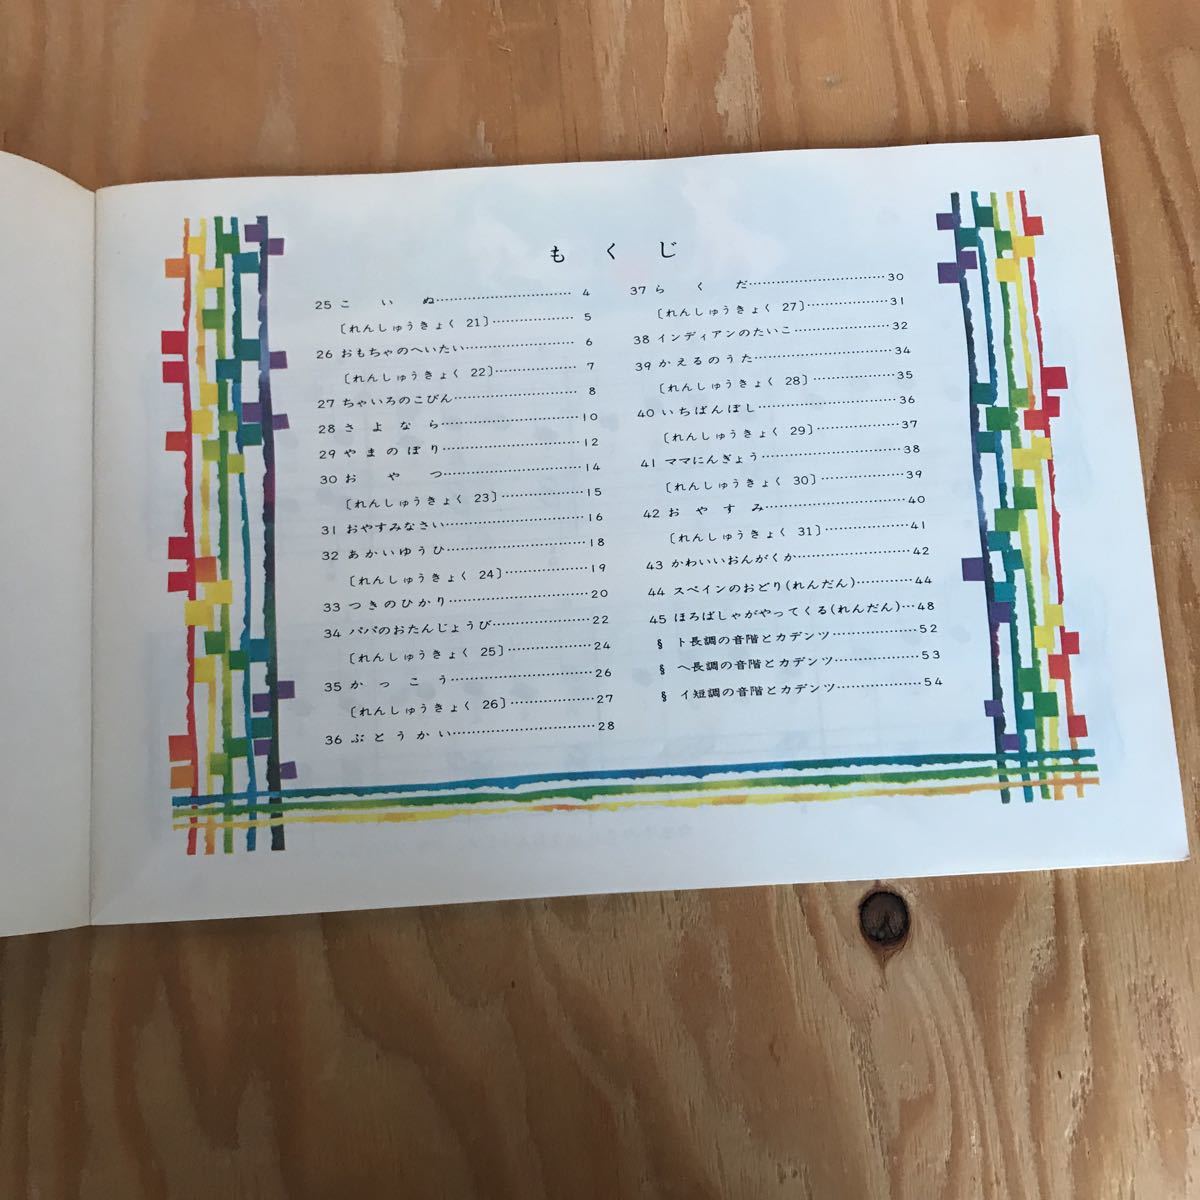 もくじ
25 こいぬ…………………………4
〔れんしゅうきょく 21〕………………5
26 おもちゃのへいたい……………………6
〔れんしゅうきょく 22〕………………7
27 ちゃいろのこびん………………………8
28 さよなら…………………………10
29 やまのぼり…………………………12
30 おやつ…………………………14
〔れんしゅうきょく 23〕………………15
31 おやすみなさい…………………………16
32 あかいゆうひ…………………………18
〔れんしゅうきょく 24〕………………19
33 つきのひかり…………………………20
34 パパのおたんじょうび…………………22
〔れんしゅうきょく 25〕………………24
35 かっこう…………………………26
〔れんしゅうきょく 26〕………………27
36 ぶとうかい…………………………28
37 らくだ…………………………30
〔れんしゅうきょく 27〕………………31
38 インディアンのたいこ…………………32
39 かえるのうた…………………………34
〔れんしゅうきょく 28〕………………35
40 いちばんぼし…………………………36
〔れんしゅうきょく 29〕………………37
41 ママにんぎょう…………………………38
〔れんしゅうきょく 30〕………………39
42 おやすみ…………………………40
〔れんしゅうきょく 31〕………………41
43 かわいいおんがくか……………………42
44 スペインのおどり(れんだん)…………44
45 ほろばしゃがやってくる(れんだん)…48
§ ト長調の音階とカデンツ………………52
§ ヘ長調の音階とカデンツ………………53
§ イ短調の音階とカデンツ………………54